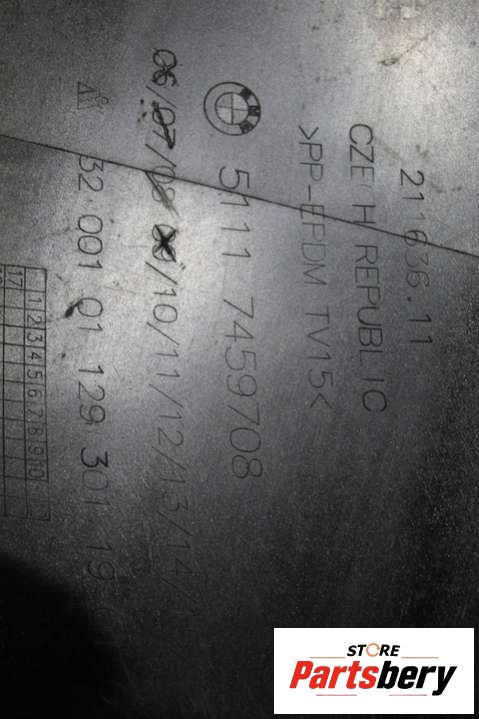 211636.11
CZECH REPUBLIC
>PP-EPDM TV15<
BMW 5111 7459708
06/07/08/09/10/11/12/13/14/
32.001.01 129 301 19
1 2 3 4 5 6 7 8 9 10
17
STORE
Partsbery